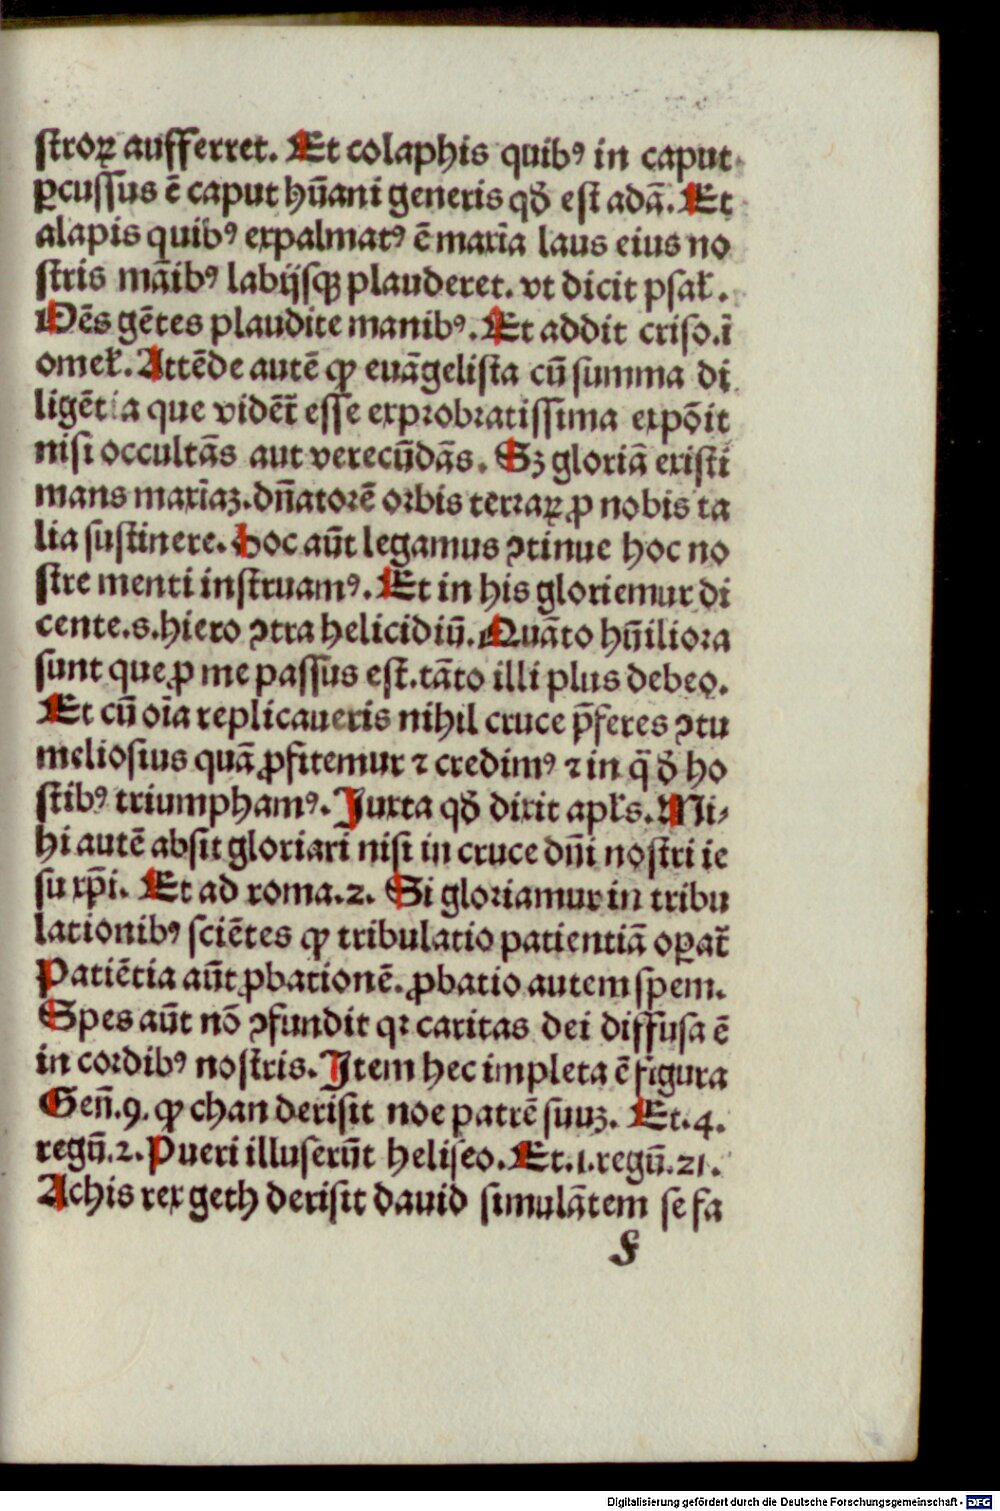 stroꝝ aufferret. Et colaphis quibꝰ in caput
ꝑcussus ē caput hūani generis qđ est adā. Et
alapis quibꝰ expalmatꝰ ē maxīa laus eius no
stris māibꝰ labijsqꝫ plauderet. vt dicit psał.
Oēs gētes plaudite manibꝰ. Et addit criso. ī
omeł. Attēde autē ꝙ euāgelista cū summa di
ligētia que vidēt̄ esse exprobratissima expōit
nisi occultās aut verecūdās. Sꝫ gloriā existi
mans maxīaꝫ. dn̄atorē orbis terraꝝ ꝓ nobis ta
lia sustinere. Hoc aūt legamus ꝯtinue hoc no
stre menti instruamꝰ. Et in his gloriemur di
cente. s. hiero ꝯtra helicidiū. Quāto hūiliora
sunt que ꝓ me passus est. tāto illi plus debeo.
Et cū oīa replicaueris nihil cruce p̄feres ꝯtu
meliosius quā ꝓfitemur ⁊ credimꝰ ⁊ in q̄ đ ho
stibꝰ triumphamꝰ. Juxta qđ dixit apłs. Mi⸗
hi autē absit gloriari nisi in cruce dn̄i nostri ie
su xp̄i. Et ad roma. 2. Si gloriamur in tribu
lationibꝰ sciētes ꝙ tribulatio patientiā oꝑat̄
Patiētia aūt ꝓbationē. ꝓbatio autem spem.
Spes aūt nō ꝯfundit qꝛ caritas dei diffusa ē
in cordibꝰ nostris. Item hec impleta ē figura
Gen̄. 9. ꝙ chan derisit noe patrē suuꝫ. Et. 4.
regū. 2. Pueri illuserūt heliseo. Et. 1. regū. 21.
Achis rex geth derisit dauid simulātem se fa
f
Digitalisierung gefördert durch die Deutsche Forschungsgemeinschaft - DFG